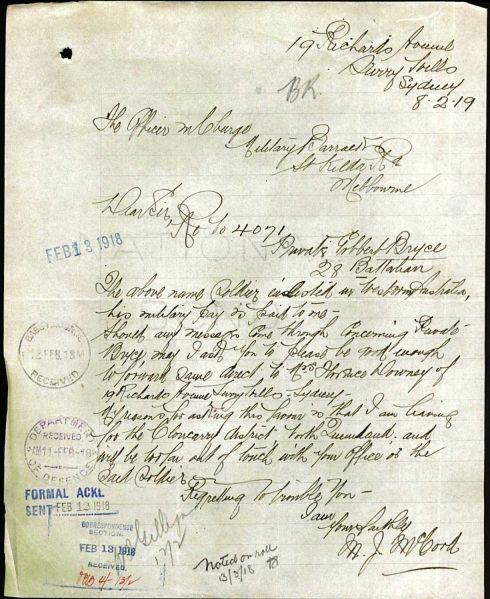 19 Richards Avenue
Surry Hills
Sydney
8.2.19
BR.
The Officer in Charge
Military Barracks
St Kilda Rd
Melbourne
Dear Sir,
Re No 4071
Private Robbert Bryce
28 Battalian
The above name Soldier enlisted in Western Australia,
his military Pay is paid to me -
Should any message come through concerning Private
Bryce may I ask you to please be good enough
to forward same direct to Mrs Florence Downey of
19 Richards Avenue Surry Hills - Sydney -
My reason for asking this favor is that I am leaving
for the Cloncurry District North Queensland and
will be out of touch with your Office or the
said Soldier
Regretting to trouble you -
I am
Yours faithfully
M. J. McCord
FEB 13 1918
13 FEB. 18
RECEIVED
DEPARTMENT
RECEIVED
AM 11-FEB-18
OF DEFENCE
FORMAL ACKL.
SENT FEB 13 1918
CORRESPONDENCE
SECTION.
FEB 13 1918
RECEIVED.
13/2
Noted on roll
13/3/18